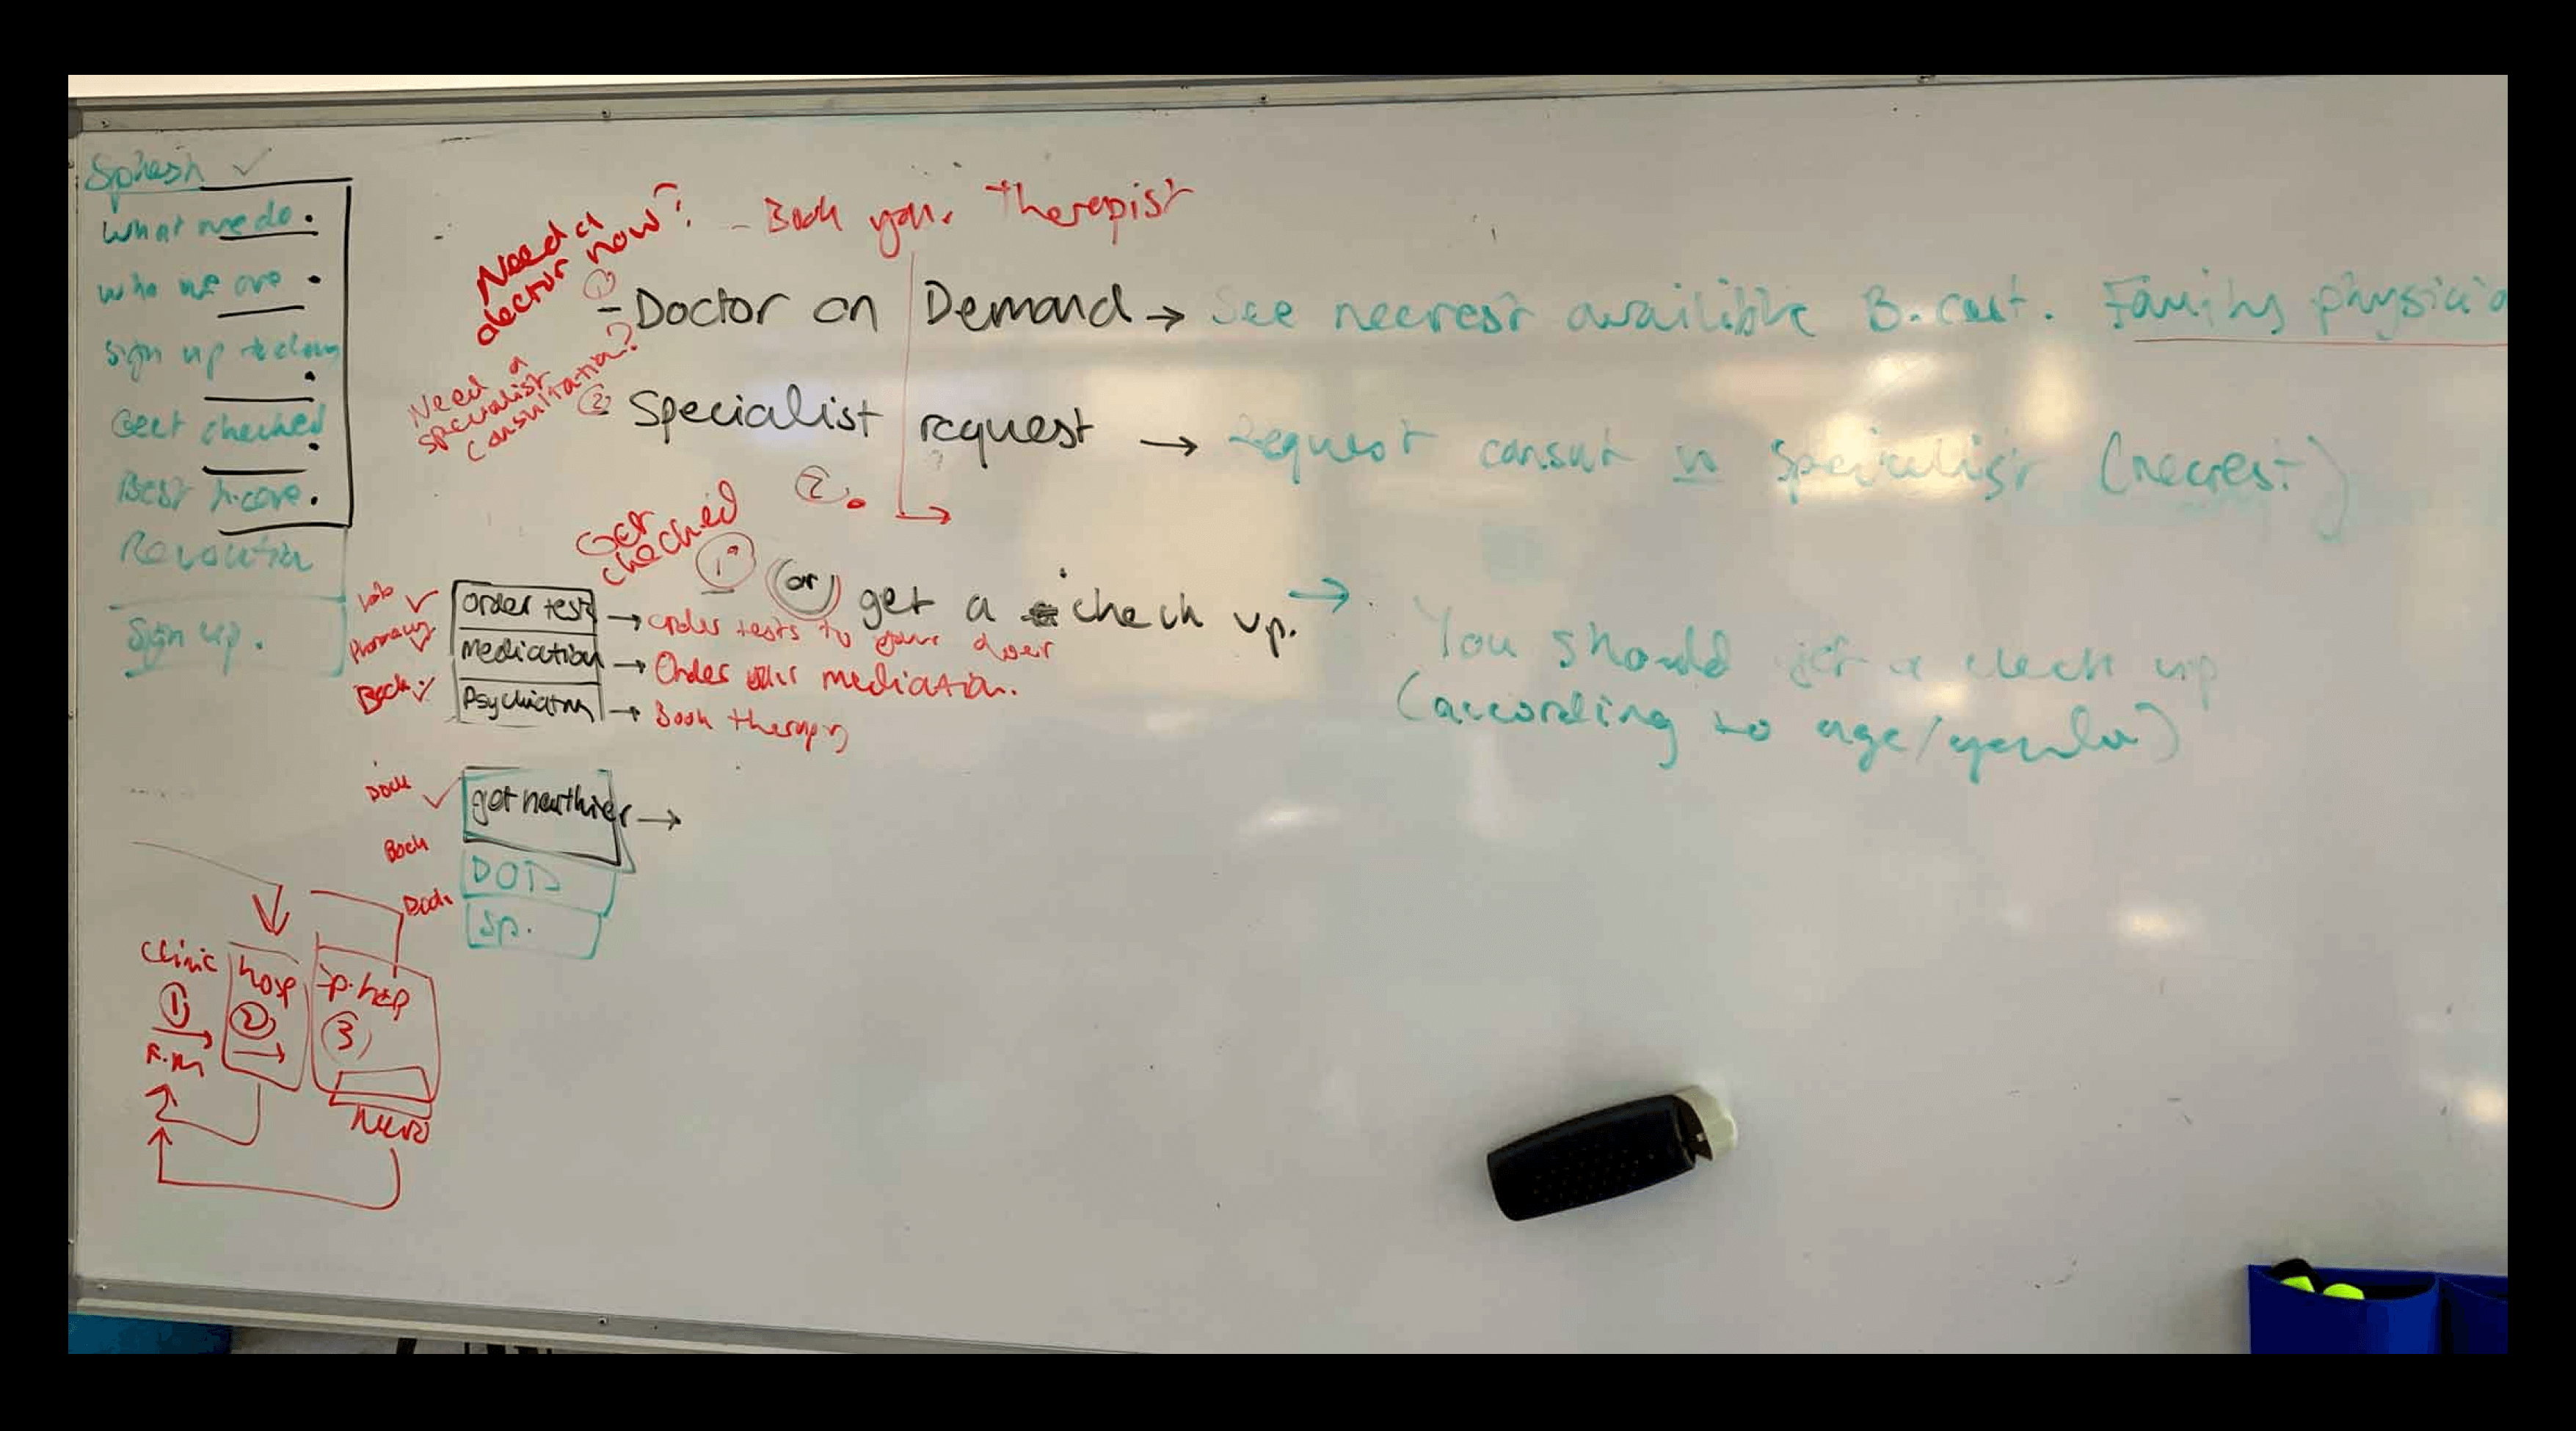 Splash ✓
What we do.
who we are.
Sign up today
Get checked
Best h.care.
Revolution
Sign up.
Need a
doctor now?
- Book your Therapist
①
- Doctor on Demand → See neerest availible B. cert. Family physicia
Need a
specialist
consultation?
② Specialist request → Request consult w specialist (neerest)
②.
Get
checked
① (or) get a check up. →
You should get a check up
(according to age/gender)
✓ Order test → order tests to your door
Pharmacy ✓ Medicution → Order your mediation.
Book ✓ Psychiatry → Book therapy
✓ get healthier →
Book DOD
Book Sp.
Clinic hosp
① ② ③
F.M